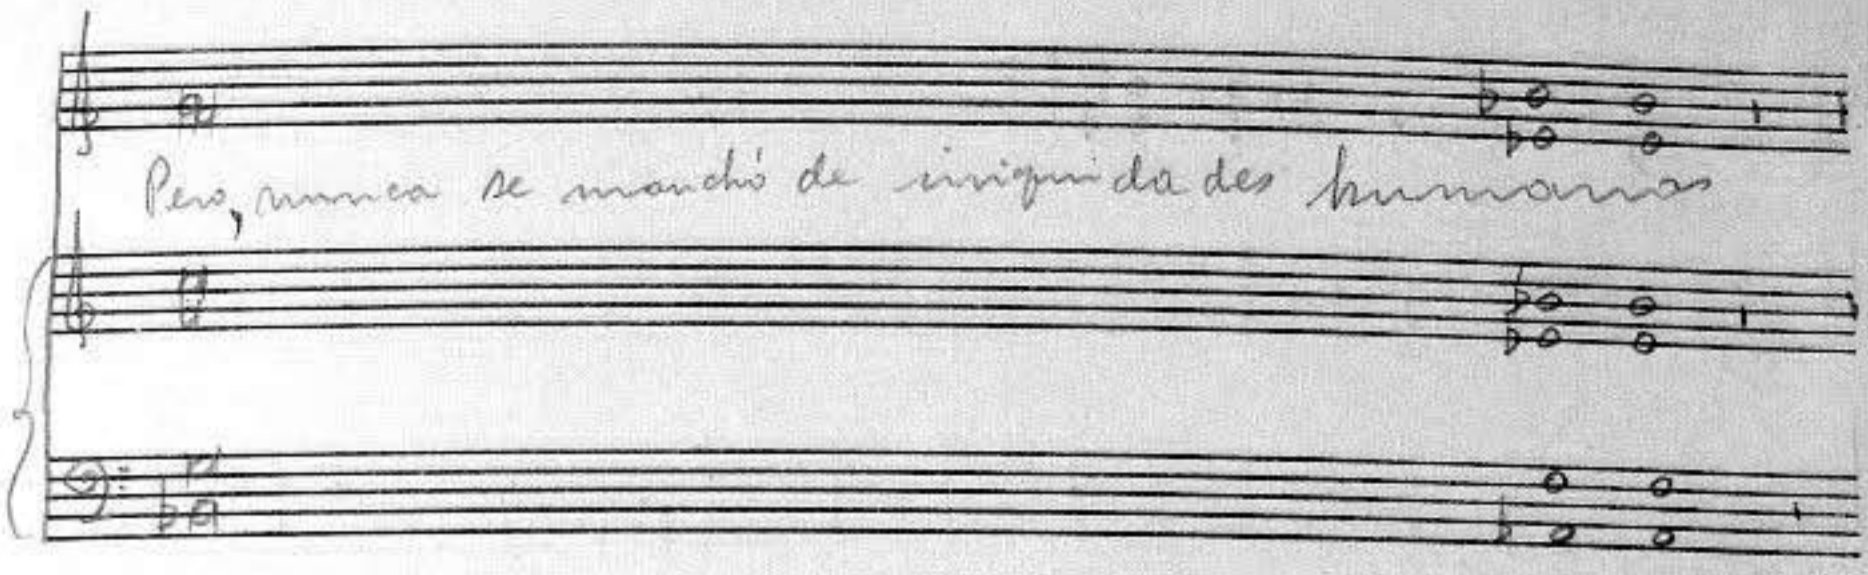 Pero, nunca se manchó de iniquidades humanas